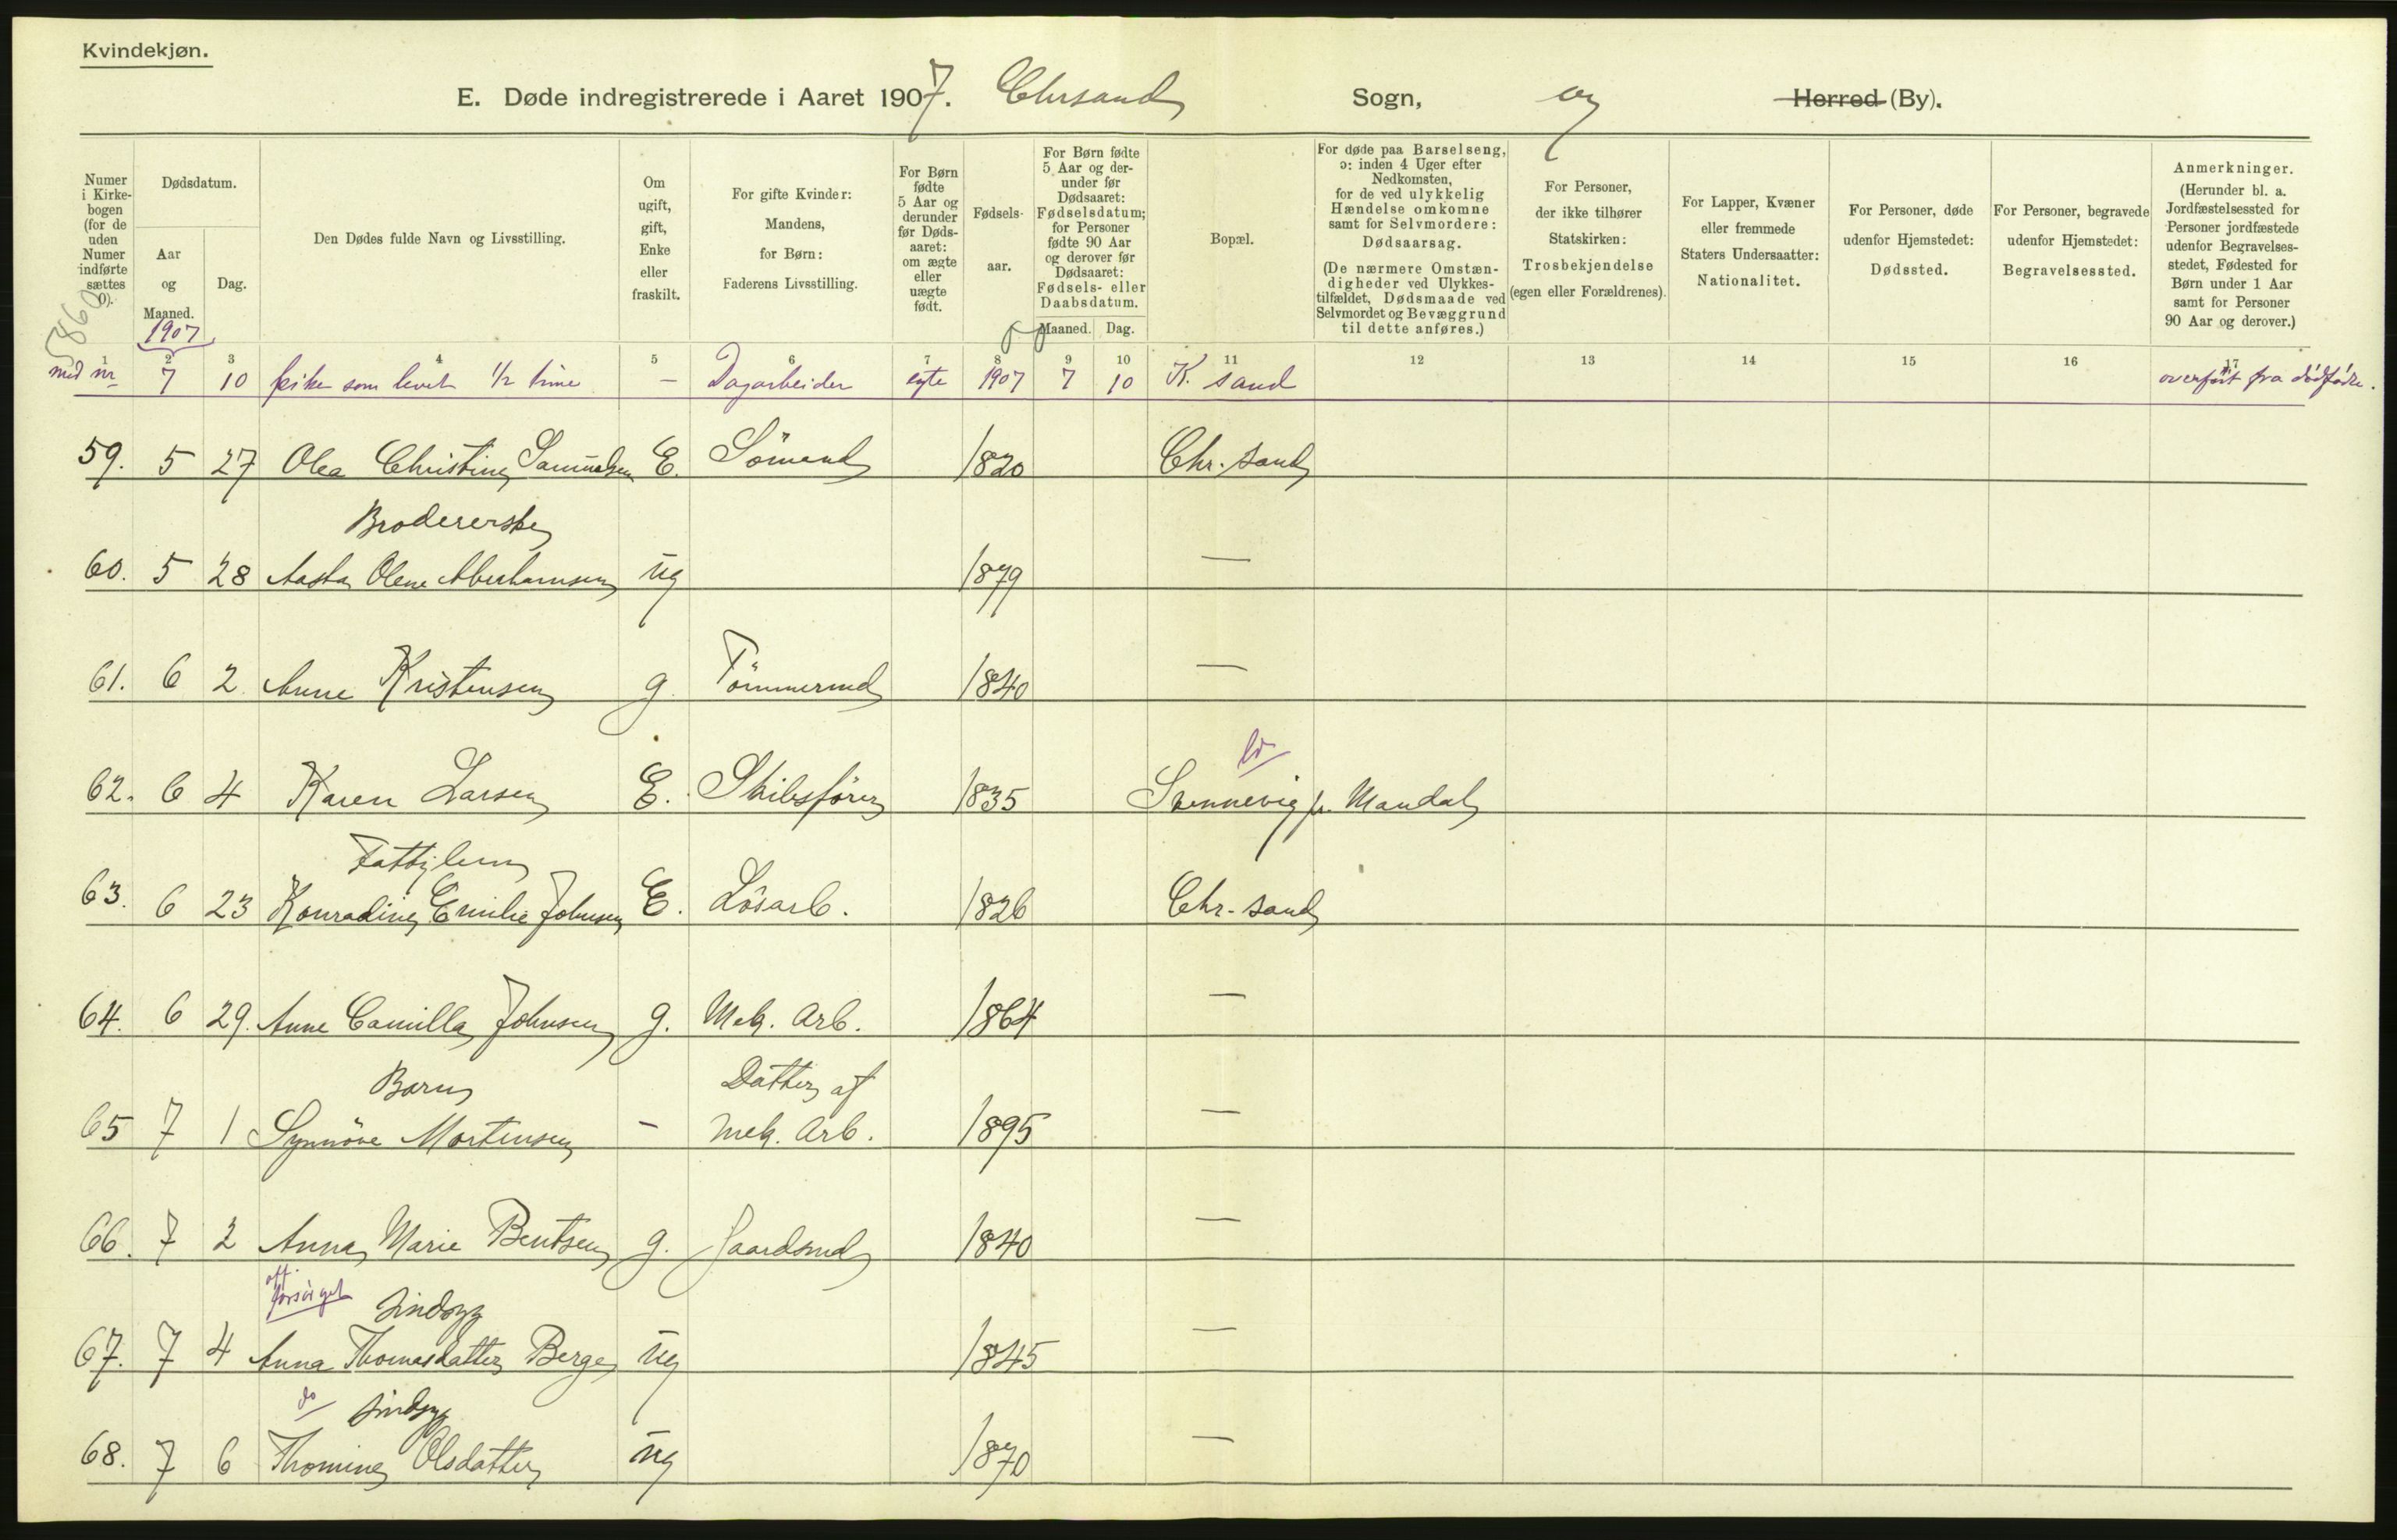 Kvindekjøn.
E. Døde indregistrerede i Aaret 1907. Chrsand Sogn, og Herred (By).
Numer i Kirkebogen (for de uden Numer indførte sættes 0).
Dødsdatum.
Aar og Maaned.
Dag.
Den Dødes fulde Navn og Livsstilling.
Om ugift, gift, Enke eller fraskilt.
For gifte Kvinder: Mandens, for Børn: Faderens Livsstilling.
For Børn fødte 5 Aar og derunder før Dødsaaret: om ægte eller uægte født.
Fødselsaar.
For Børn fødte 5 Aar og derunder før Dødsaaret: Fødselsdatum; for Personer fødte 90 Aar og derover før Dødsaaret: Fødsels- eller Daabsdatum.
Maaned. Dag.
Bopæl.
For døde paa Barselseng, ɔ: inden 4 Uger efter Nedkomsten, for de ved ulykkelig Hændelse omkomne samt for Selvmordere: Dødsaarsag.
(De nærmere Omstændigheder ved Ulykkestilfældet, Dødsmaade ved Selvmordet og Bevæggrund til dette anføres.)
For Personer, der ikke tilhører Statskirken: Trosbekjendelse (egen eller Forældrenes).
For Lapper, Kvæner eller fremmede Staters Undersaatter: Nationalitet.
For Personer, døde udenfor Hjemstedet: Dødssted.
For Personer, begravede udenfor Hjemstedet: Begravelsessted.
Anmerkninger.
(Herunder bl. a. Jordfæstelsessted for Personer jordfæstede udenfor Begravelsesstedet, Fødested for Børn under 1 Aar samt for Personer 90 Aar og derover.)
1907
1 2 3 4 5 6 7 8 9 10 11 12 13 14 15 16 17
7 10 pike som levet 1/2 time - Dagarbeider egte 1907 7 10 K.sand overført fra dødfødte.
59. 5 27 Olea Christine Samuelsen E. Sömand 1820 Chr.sand
Brodererske
60. 5 28 Aasta Olene Abrahamsen ug 1879 —
61. 6 2 Anne Kristensen g. Tömmermd 1840 —
62. 6 4 Karen Larsen E. Skibsförer 1835 Svennevig pr. Mandal
Fattiglem
63. 6 23 Konradine Emilie Johnsen E. Lösarb. 1826 Chr.sand
64. 6 29. Anne Camilla Johnsen g. Mek. Arb. 1864 —
Barn Datter af
65 7 1 Synnöve Mortensen - Mek. Arb. 1895 —
66. 7 2 Anna Marie Bentsen g. Gaardmd 1840 —
off. forsörget Sindsyg
67. 7 4 Anna Thomasdatter Berge ug 1845 —
do Sindsyg
68. 7 6 Thomine Olsdatter ug 1870 —